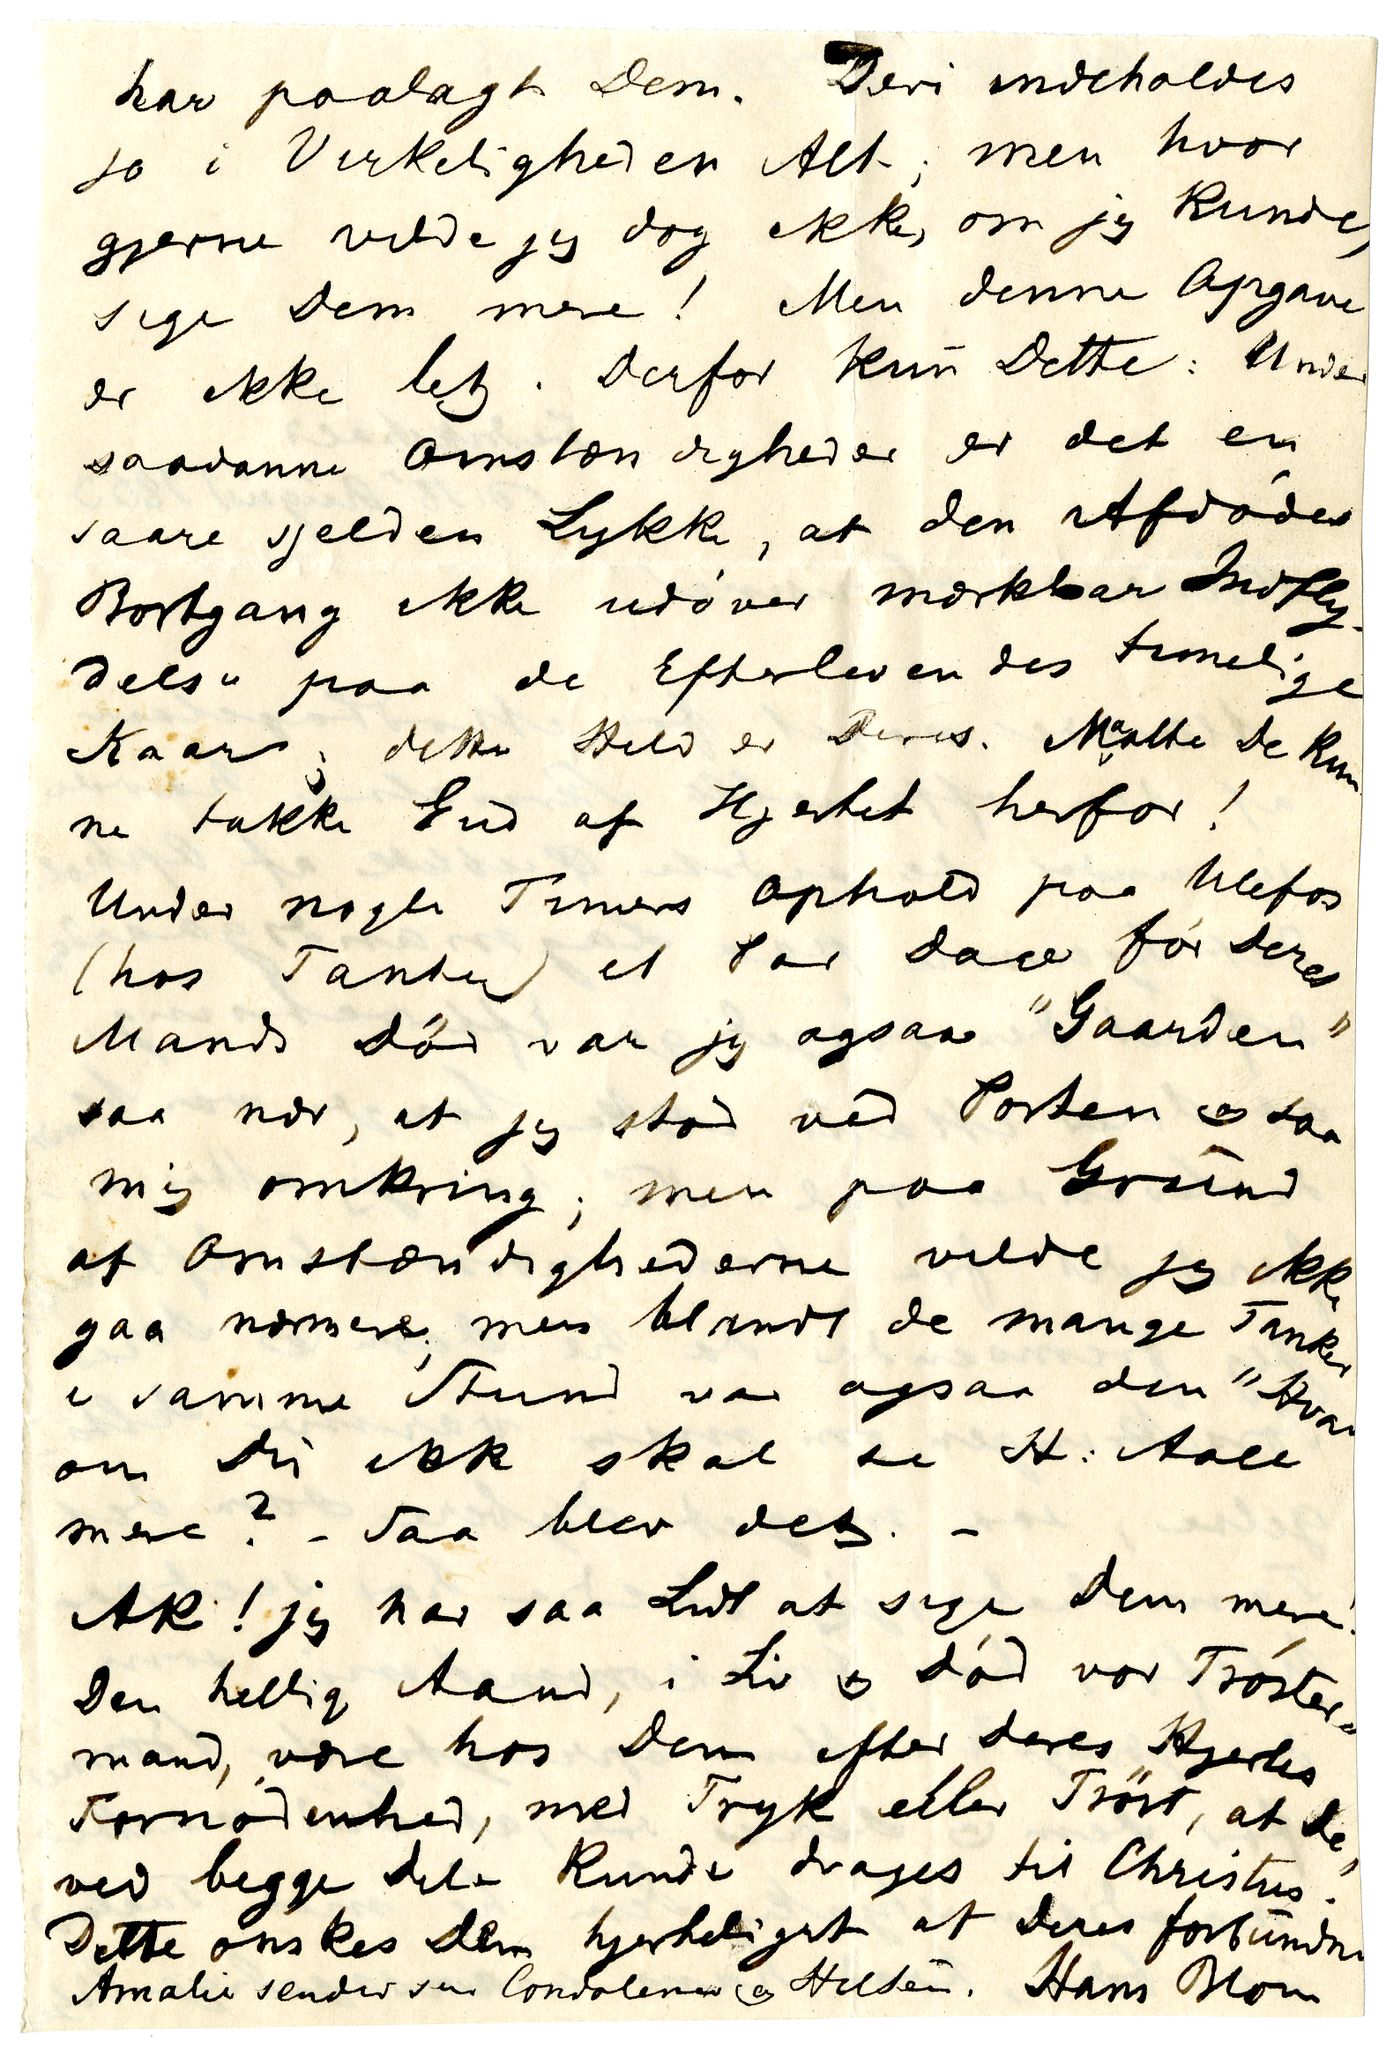 har paalagt Dem. Deri indeholdes
jo i Virkeligheden Alt; men hvor
gjerne vilde jeg dog ikke, om jeg kunde,
sige Dem mere! Men denne Opgave
er ikke let. Derfor kun Dette: Under
saadanne Omstændigheder er det en
saare sjelden Lykke, at den Afdødes
Bortgang ikke udøver mærkbar Indfly-
delse paa de Efterlevendes timelige
Kaar; dette Held er Deres. Maatte De kun
ne takke Gud af Hjertet herfor!
Under nogle Timers Ophold paa Ulefos
(hos Tanter) et Par Dage før Deres
Mands Død var jeg ogsaa "Gaarden"
saa nær, at jeg stod ved Porten og saa
mig omkring; men paa Grund
af Omstændighederne vilde jeg ikke
gaa nærmere; men blandt de mange Tanker
i samme Stund var ogsaa den "Hvad
om Du ikke skal se H: Aall
mere? - Saa blev det. -
Ak! jeg har saa Lidt at sige Dem mere!
Den hellig Aand, i Liv og Død vor Trøster-
mand, være hos Dem efter Deres Hjertes
Fornødenhed, med Tryk eller Trøst, at De,
ved begge Dele kunde drages til Christus.
Dette ønskes Dem hjerteligst af Deres forbundne
Amalie sender sin Condolence og Hilsen. Hans Blom